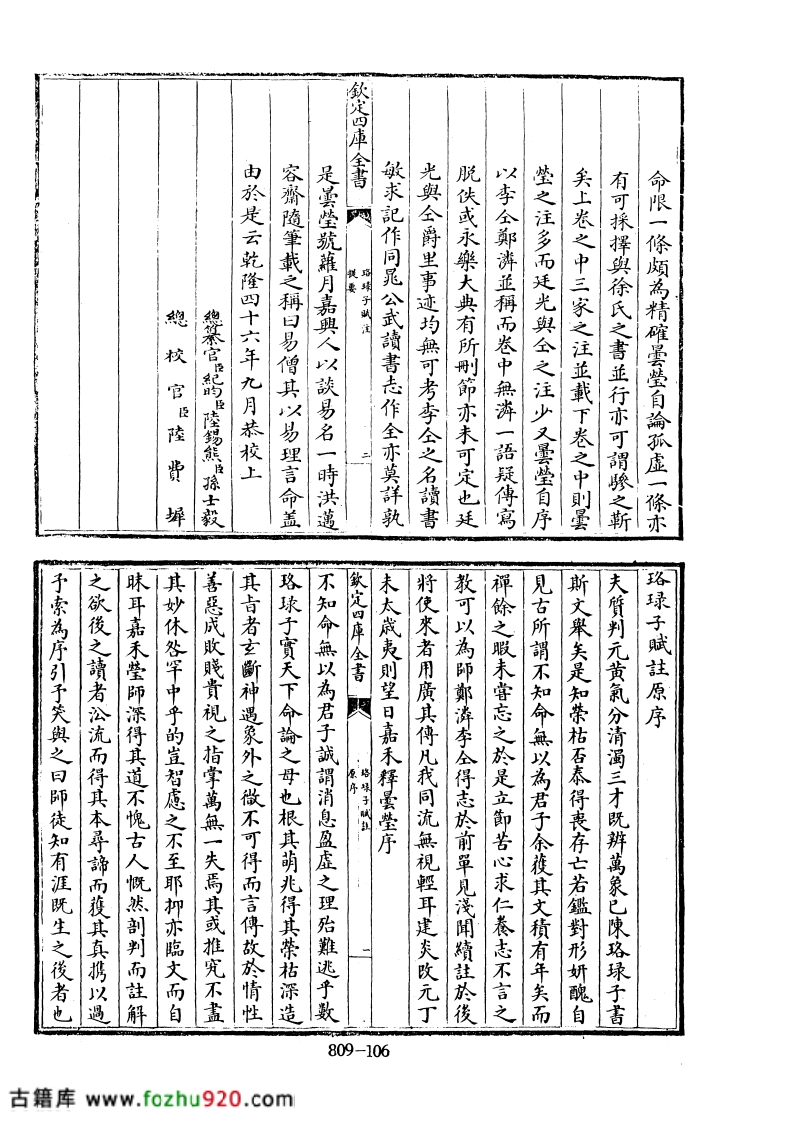 命限一條頗為精確曇瑩自論孤虛一條亦
有可採擇與徐氏之書並行亦可謂驂之靳
矣上卷之中三家之注並載下卷之中則曇
瑩之注多而廷光與仝之注少又曇瑩自序
以李仝鄭潾並稱而卷中無潾一語疑傳寫
脱佚或永樂大典有所刪節亦未可定也廷
光與仝爵里事迹均無可考李仝之名讀書
敏求記作同晁公武讀書志作全亦莫詳孰
欽定四庫全書
珞琭子賦注
提要
二
是曇瑩號蘿月嘉興人以談易名一時洪邁
容齋隨筆載之稱曰易僧其以易理言命盖
由於是云乾隆四十六年九月恭校上
總纂官臣紀昀臣陸錫熊臣孫士毅
總校官臣陸費墀
珞琭子賦註原序
夫質判元黃氣分清濁三才既辨萬象已陳珞琭子書
斯文舉矣是知榮枯否泰得喪存亡若鑑對形妍醜自
見古所謂不知命無以為君子余獲其文積有年矣而
禪餘之暇未甞忘之於是立節苦心求仁養志不言之
教可以為師鄭潾李仝得志於前單見淺聞續註於後
將使來者用廣其傳凡我同流無視輕耳建炎改元丁
未太歲夷則望日嘉禾釋曇瑩序
欽定四庫全書
珞琭子賦註
原序
一
不知命無以為君子誠謂消息盈虛之理殆難逃乎數
珞琭子實天下命論之母也根其萌兆得其榮枯深造
其㫖者玄斷神遇象外之微不可得而言傳故於情性
善惡成敗賤貴視之指掌萬無一失焉其或推究不盡
其妙休咎罕中乎的豈智慮之不至耶抑亦臨文而自
昧耳嘉禾瑩師深得其道不愧古人慨然剖判而註解
之欲後之讀者㳂流而得其本尋諦而獲其真携以過
予索為序引予笑與之曰師徒知有涯既生之後者也
809-106
古籍库 www.fozhu920.com